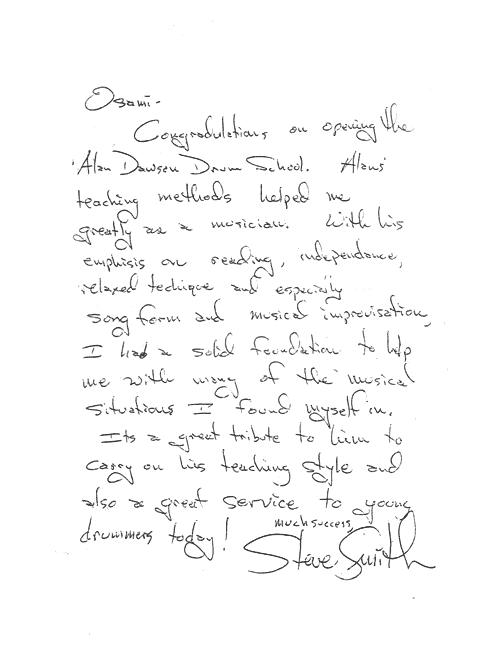 Osami-
Congradulations on opening the
'Alan Dawson Drum School. Alans'
teaching methods helped me
greatly as a musician. With his
emphisis on reading, independance,
relaxed techique and especially
song form and musical improvisation,
I had a solid foundation to help
me with many of the musical
situations I found myself in.
Its a great tribute to him to
carry on his teaching style and
also a great service to young
drummers today!
much success,
Steve Smith